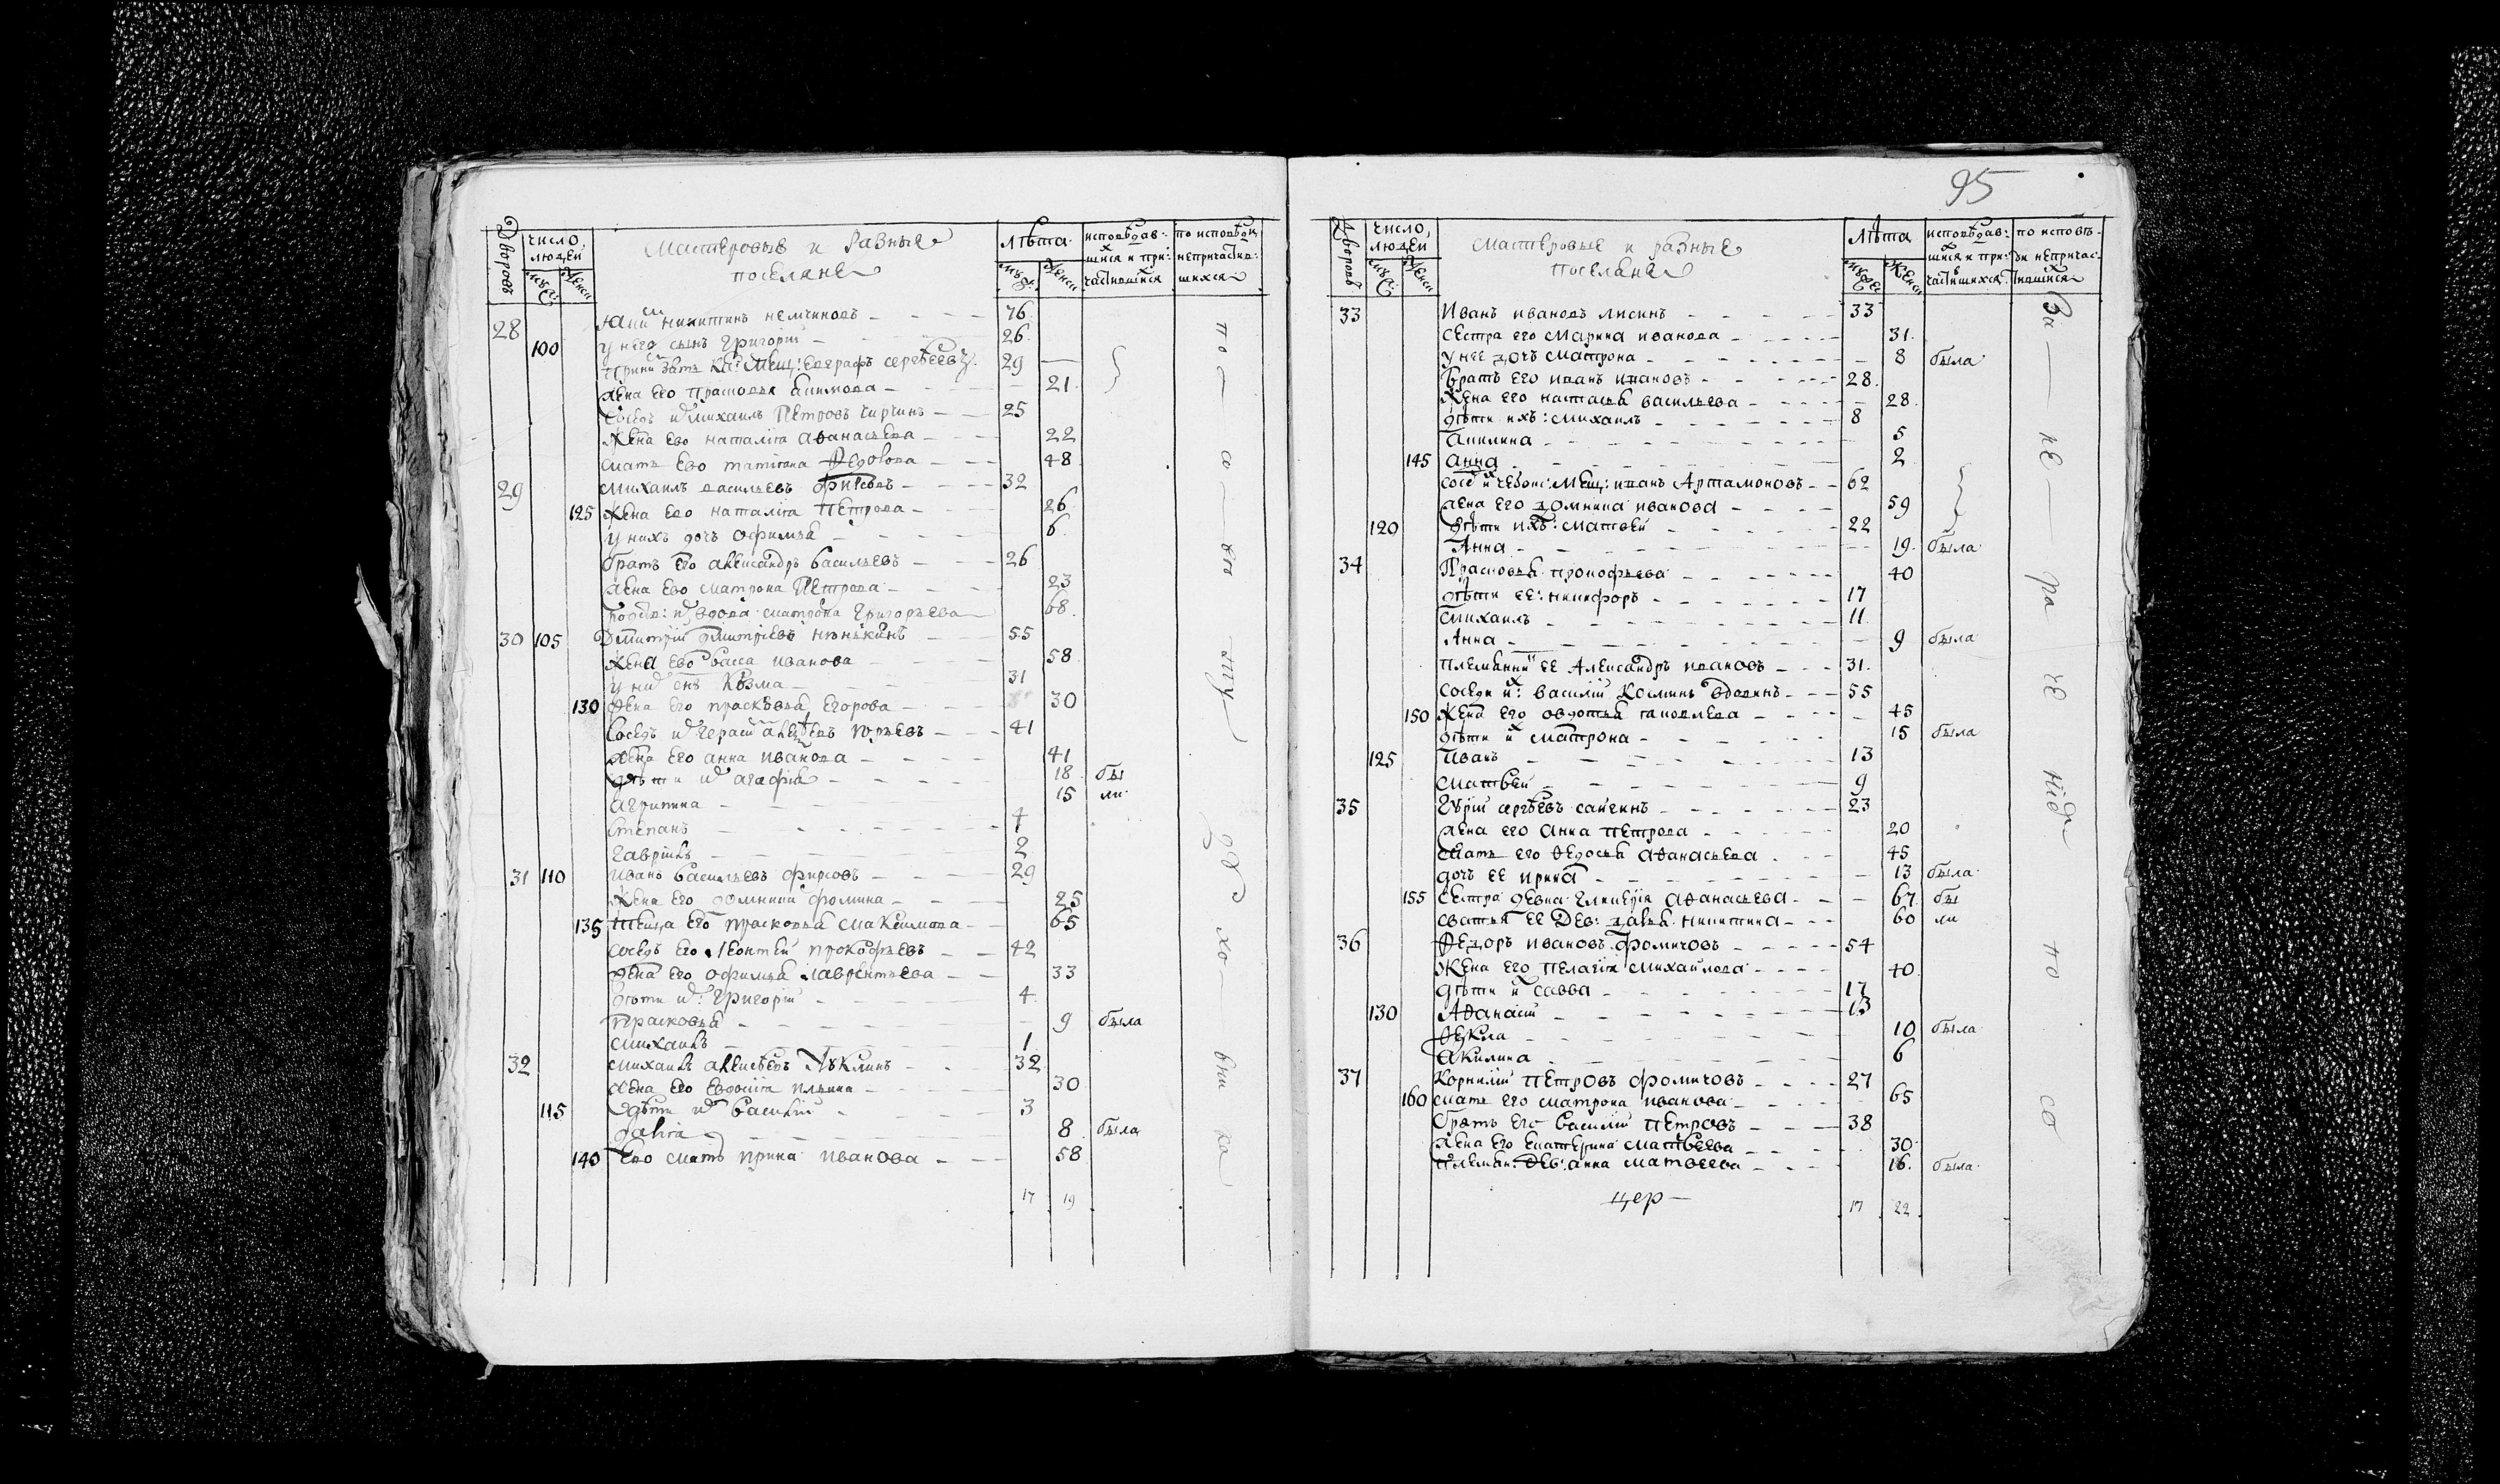 95
Дворовъ
число людей
муж:
женск
Мастеровые и Разные поселяне
Лѣта
исповѣдавшихся и причастившихся
по исповѣди непричастившихся
28 Никитинъ немчиновъ 76
100 у него сынъ Григорий 26
Мещ: Евграфъ сергѣевъ 29
жена Его Прасковья Акимова 21
Соседъ Михаилъ Петровъ 25
жена Ево наталия аѳанасьева 22
мать Ево татияна Ѳедорова 48
29 михаилъ васильевъ фирсовъ 32
125 жена Ево наталия Петрова 26
у нихъ дочь офимья 6
братъ Его александръ васильевъ 26
жена Ево матрона Петрова 23
вдова матрона Григорьева 68
30 105 Дмитрий дмитриевъ 55
жена Ево васса иванова 58
у них снъ Козма 31
130 жена Его прасковья Егорова 30
Соседъ их герасим алексѣевъ юрьевъ 41
жена Его анна иванова 41
дѣти их агафия 18 бы
агрипина 15 ли
степанъ 4
гаврилъ 2
31 110 иванъ васильевъ фирсовъ 29
жена Его домника фомина 25
135 теща Его прасковья максимова 65
соседъ Его Леонтей прокофьевъ 42
жена Его офимья лаврентьева 33
дѣти их: григорий 4
Прасковья 9 была
михаилъ 1
32 михаилъ алексѣевъ 32
жена Ево Евдокия ильина 30
115 дѣти их василий 3
далия 8 была
140 Ево мать ирина иванова 58
17 19
по а кто ту хо
Дворовъ
число людей
муж:
женск
мастеровые и разные поселяне
Лѣта
исповѣдавшихся и причастившихся
по исповѣди непричастившихся
33 Иванъ ивановъ лисинъ 33
сестра его Марина иванова 31
у нее дочь матрона 8 была
братъ его иванъ ивановъ 28
жена его настасья васильева 28
дѣти ихъ: михаилъ 8
Акилина 5
145 анна 2
мещ: иванъ Артамоновъ 62
жена его домника иванова 59
120 дѣти ихъ: матвей 22
Анна 19 была
34 Прасковья прокофьева 40
дѣти ее: никифоръ 17
михаилъ 11
Анна 9 была
племянник ее Александръ ивановъ 31
соседи их: василий Косминъ вдовинъ 55
150 жена его овдотья иаковлева 45
дѣти их матрона 15 была
125 Иванъ 13
матвей 9
35 Гурий сергѣевъ 23
жена его анна петрова 20
мать его ѳедосья аѳанасьева 45
дочь ее ирина 13 была
155 сестра девка гликерия аѳанасьева 67 бы
сватья ее дев: дарья никитина 60 ли
36 Ѳедоръ ивановъ фомичовъ 54
жена его пелагия михайлова 40
дѣти их савва 17
130 Аѳанасий 13
Ѳекла 10 была
Акилина 6
37 Корнилий петровъ фомичовъ 27
160 мать его матрона иванова 65
братъ Его василий петровъ 38
жена его екатерина матвеева 30
племян: дев: анна матвеева 16 была
цер
17 22
За не ра че нїе по со